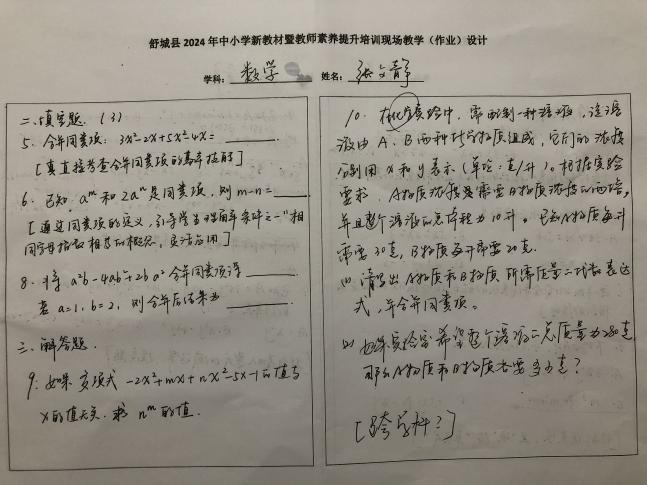 舒城县 2024 年中小学新教材暨教师素养提升培训现场教学（作业）设计
学科：数学 姓名：张文静
二、填空题.（3）
5. 合并同类项：3x²-2x+5x²-4x=
[直接考查合并同类项的基本技能]
6. 已知 aᵐ 和 2aⁿ 是同类项，则 m-n=
[通过同类项的定义，引导学生理解条件之一"相
同字母指数相等的概念，灵活应用]
8. 将 a²b-4ab²+2ba² 合并同类项得
若 a=1，b=2，则合并后结果为
三、解答题.
9. 如果多项式 -2x²+mx+nx²-5x-1的值与
x的值无关，求 nᵐ 的值.
10. 在化学实验中，需配制一种溶液，这溶
液由 A、B两种化学物质组成，它们的浓度
分别用 x 和 y表示（单位：克/升）。根据实验
要求，A物质浓度是B物质浓度的两倍，
并且整个溶液的总体积为10升。已知A物质每升
需要30克，B物质每升需要20克.
(1) 请写出A物质和B物质所需质量的代数表达
式，并合并同类项。
(2) 如果实验室希望整个溶液的总质量为280克
那么A物质和B物质各需多少克？
[跨学科？]